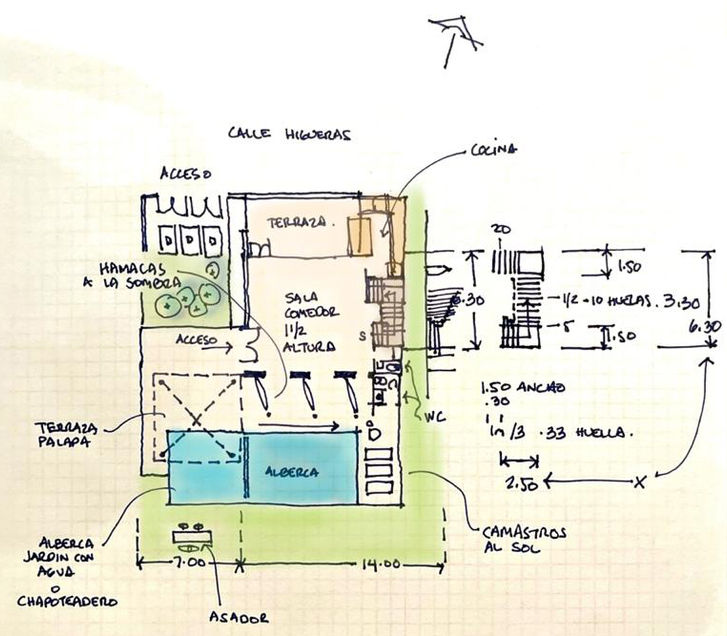 CALLE HIGUERAS
COCINA
ACCESO
TERRAZA.
20
1.50
HAMACAS
A LA SOMBRA
SALA
COMEDOR
1 1/2
ALTURA
6.30
1/2 - 10 HUELLAS. 3.30
6.30
ACCESO
S
S
1.50
1.50 ANCHO
.30
WC
TERRAZA
PALAPA
1m/3 .33 HUELLA.
ALBERCA
2.50
X
ALBERCA
JARDIN CON
AGUA
O
CHAPOTEADERO
CAMASTROS
AL SOL
7.00
14.00
ASADOR